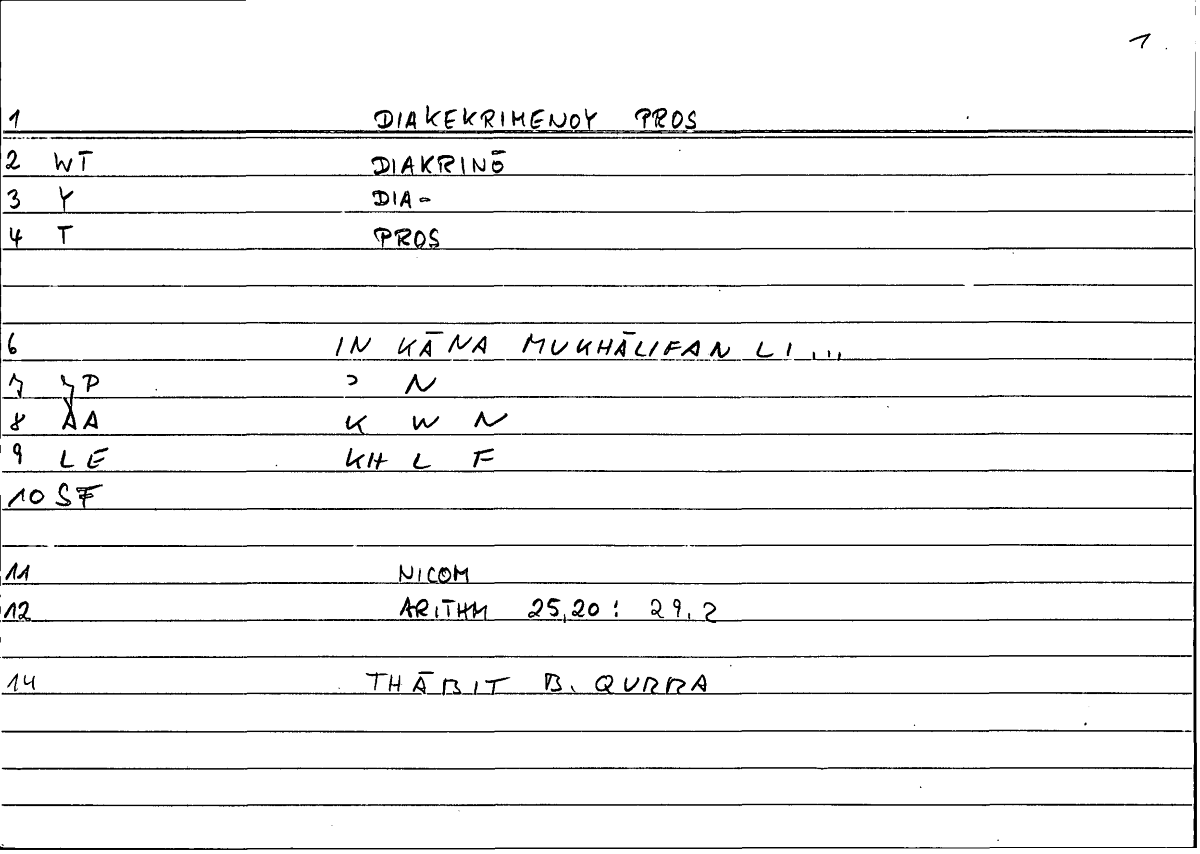 1
1 DIAKEKRIMENOY PROS
2 WT DIAKRINŌ
3 Y DIA-
4 T PROS
6 IN KĀNA MUKHĀLIFAN LI...
7 ȜP Ɔ N
8 AA K W N
9 LE KH L F
10 SF
11 NICOM
12 ARITHM 25,20 : 29,2
14 THĀBIT B. QURRA